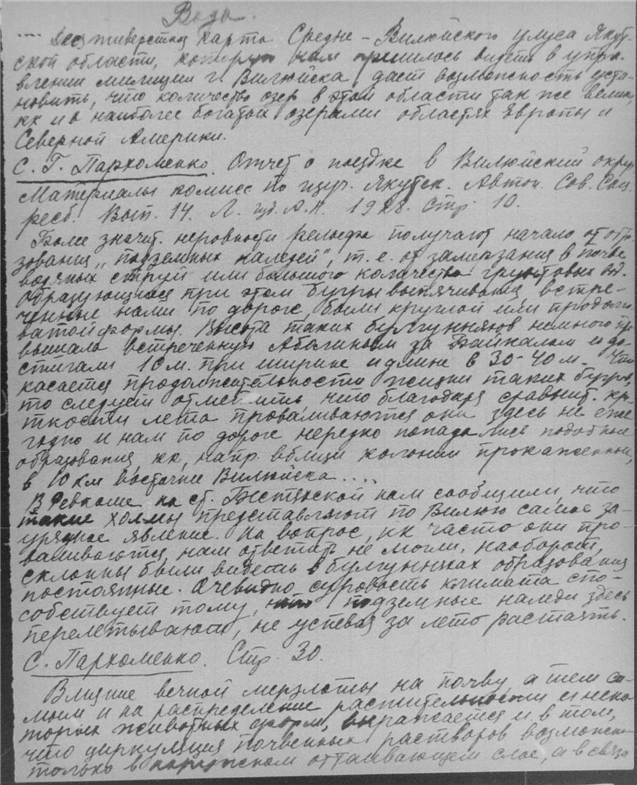 Вода.
.... десятиверстная карта Средне-Вилюйского улуса Якут-
ской области, которую нам пришлось видеть в упра-
влении милиции г. Вилюйска, дает возможность уста-
новить, что количество озер в этой области так же велико,
кк и в наиболее богатой озерами областях Европы и
Северной Америки.
С. Г. Пархоменко. Отчет о поездке в Вилюйский округ
Материалы комисс по изуч. Якутск. Автон. Сов. Соц
ресб. Вып. 14. Л. изд. А.Н. 1928. Стр 10.
Более значит. неровности рельефа получают начало от обр
зования "подземных наледей", т. е. от замерзания в почве
водных струй или большого количества грунтовых вод.
Образующиеся при этом бугры выпячивания, встре-
ченные нами по дороге, были круглой или продолго
ватой формы. Высота таких булгунняхов немного пр
вышала встреченную Аболиным за Байкалом и до-
стигали 10 м. при ширине и длине в 30-40 м. Что
касается продолжительности жизни таких бугров,
то следует отметить что благодаря сравнит. кр
ткости лета проваливаются они здесь не еже
годно и нам по дороге нередко попадались подобные
образования, кк, напр. вблизи колонии прокаженных,
в 10 км восточнее Вилюйска ....
В Ревкоме на ст. Бестяхской нам сообщили, что
такие холмы представляют по Вилюю самое за-
урядное явление. На вопрос, кк часто они про-
валиваются, нам ответить не могли, наоборот,
склонны были видеть в булгунняхах образования
постоянные. Очевидно суровость климата спо-
собствует тому, что подземные наледи здесь
перелетывают, не успевая за лето растаять.
С. Пархоменко. Стр. 30.
Влияние вечной мерзлоты на почву, а тем са-
мым и на распределение растительности и неко-
торых животных форм, выражается и в том,
что циркуляция почвенных растворов возможна
только в оттаивающем слое, а в связи